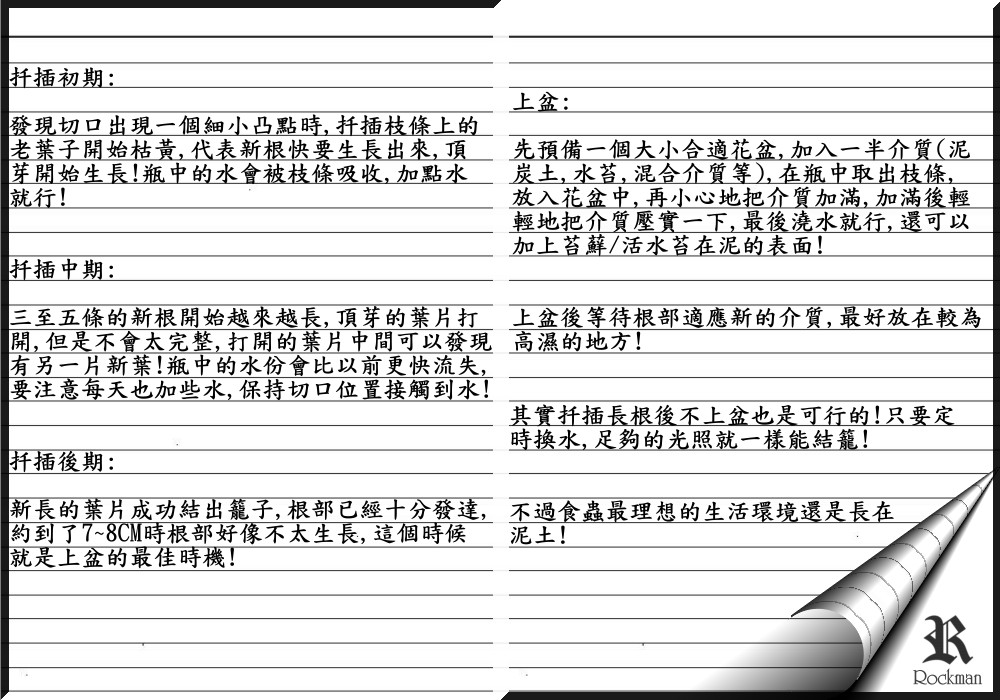 扦插初期:
發現切口出現一個細小凸點時,扦插枝條上的
老葉子開始枯黃,代表新根快要生長出來,頂
芽開始生長!瓶中的水會被枝條吸收,加點水
就行!
扦插中期:
三至五條的新根開始越來越長,頂芽的葉片打
開,但是不會太完整,打開的葉片中間可以發現
有另一片新葉!瓶中的水份會比以前更快流失,
要注意每天也加些水,保持切口位置接觸到水!
扦插後期:
新長的葉片成功結出籠子,根部已經十分發達,
約到了7~8CM時根部好像不太生長,這個時候
就是上盆的最佳時機!
上盆:
先預備一個大小合適花盆,加入一半介質(泥
炭土,水苔,混合介質等),在瓶中取出枝條,
放入花盆中,再小心地把介質加滿,加滿後輕
輕地把介質壓實一下,最後澆水就行,還可以
加上苔蘚/活水苔在泥的表面!
上盆後等待根部適應新的介質,最好放在較為
高濕的地方!
其實扦插長根後不上盆也是可行的!只要定
時換水,足夠的光照就一樣能結籠!
不過食蟲最理想的生活環境還是長在
泥土!
R
Rockman